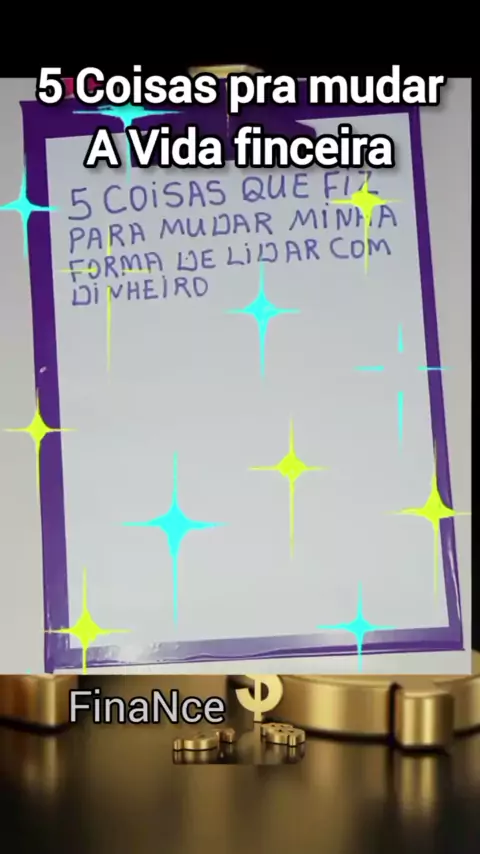 5 Coisas pra mudar
A Vida finceira
5 COISAS QUE FIZ
PARA MUDAR MINHA
FORMA DE LIDAR COM
DINHEIRO
FinaNce $